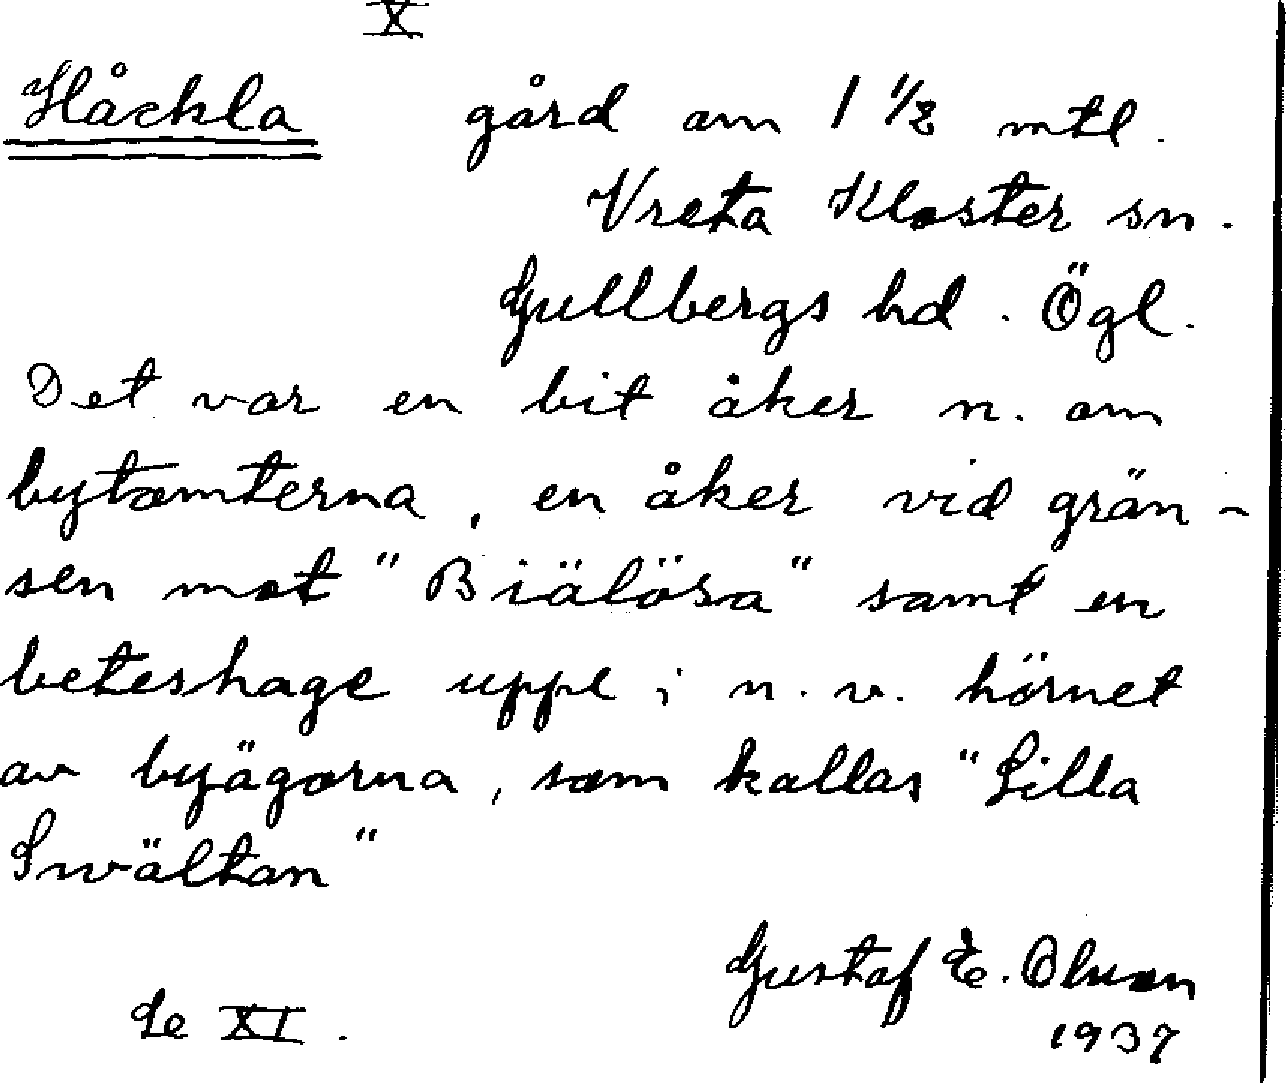 X
Håckla gård om 1 1/2 mtl.
Vreta Kloster sn.
Gullbergs hd. Ögl.
Det var en bit åker n. om
bytomterna, en åker vid grän-
sen mot "Biälösa" samt en
beteshage uppe i n.v. hörnet
av byägorna, som kallas "Lilla
Swältan"
Gustaf E. Olsson
Se XI.
1937